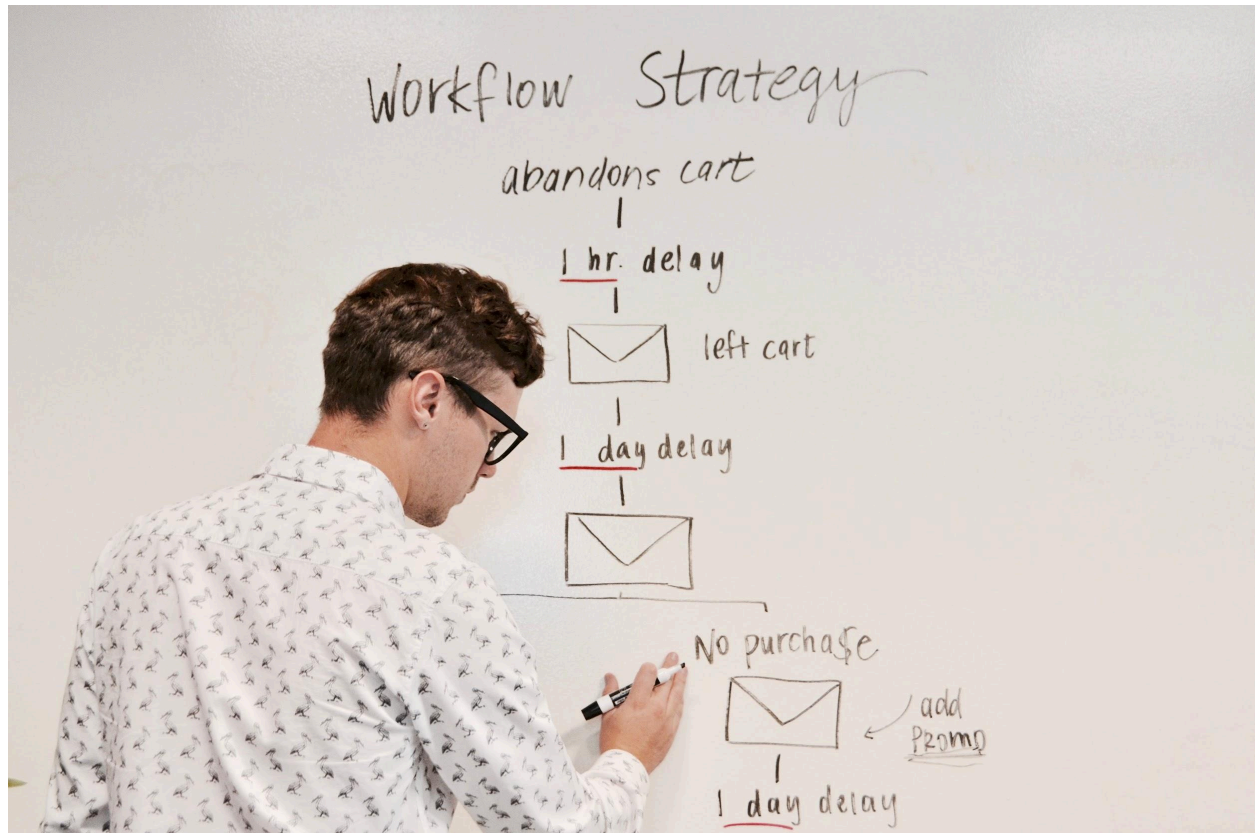 Workflow Strategy
abandons cart
1 hr. delay
left cart
1 day delay
No purcha$e
add
PROMO
1 day delay